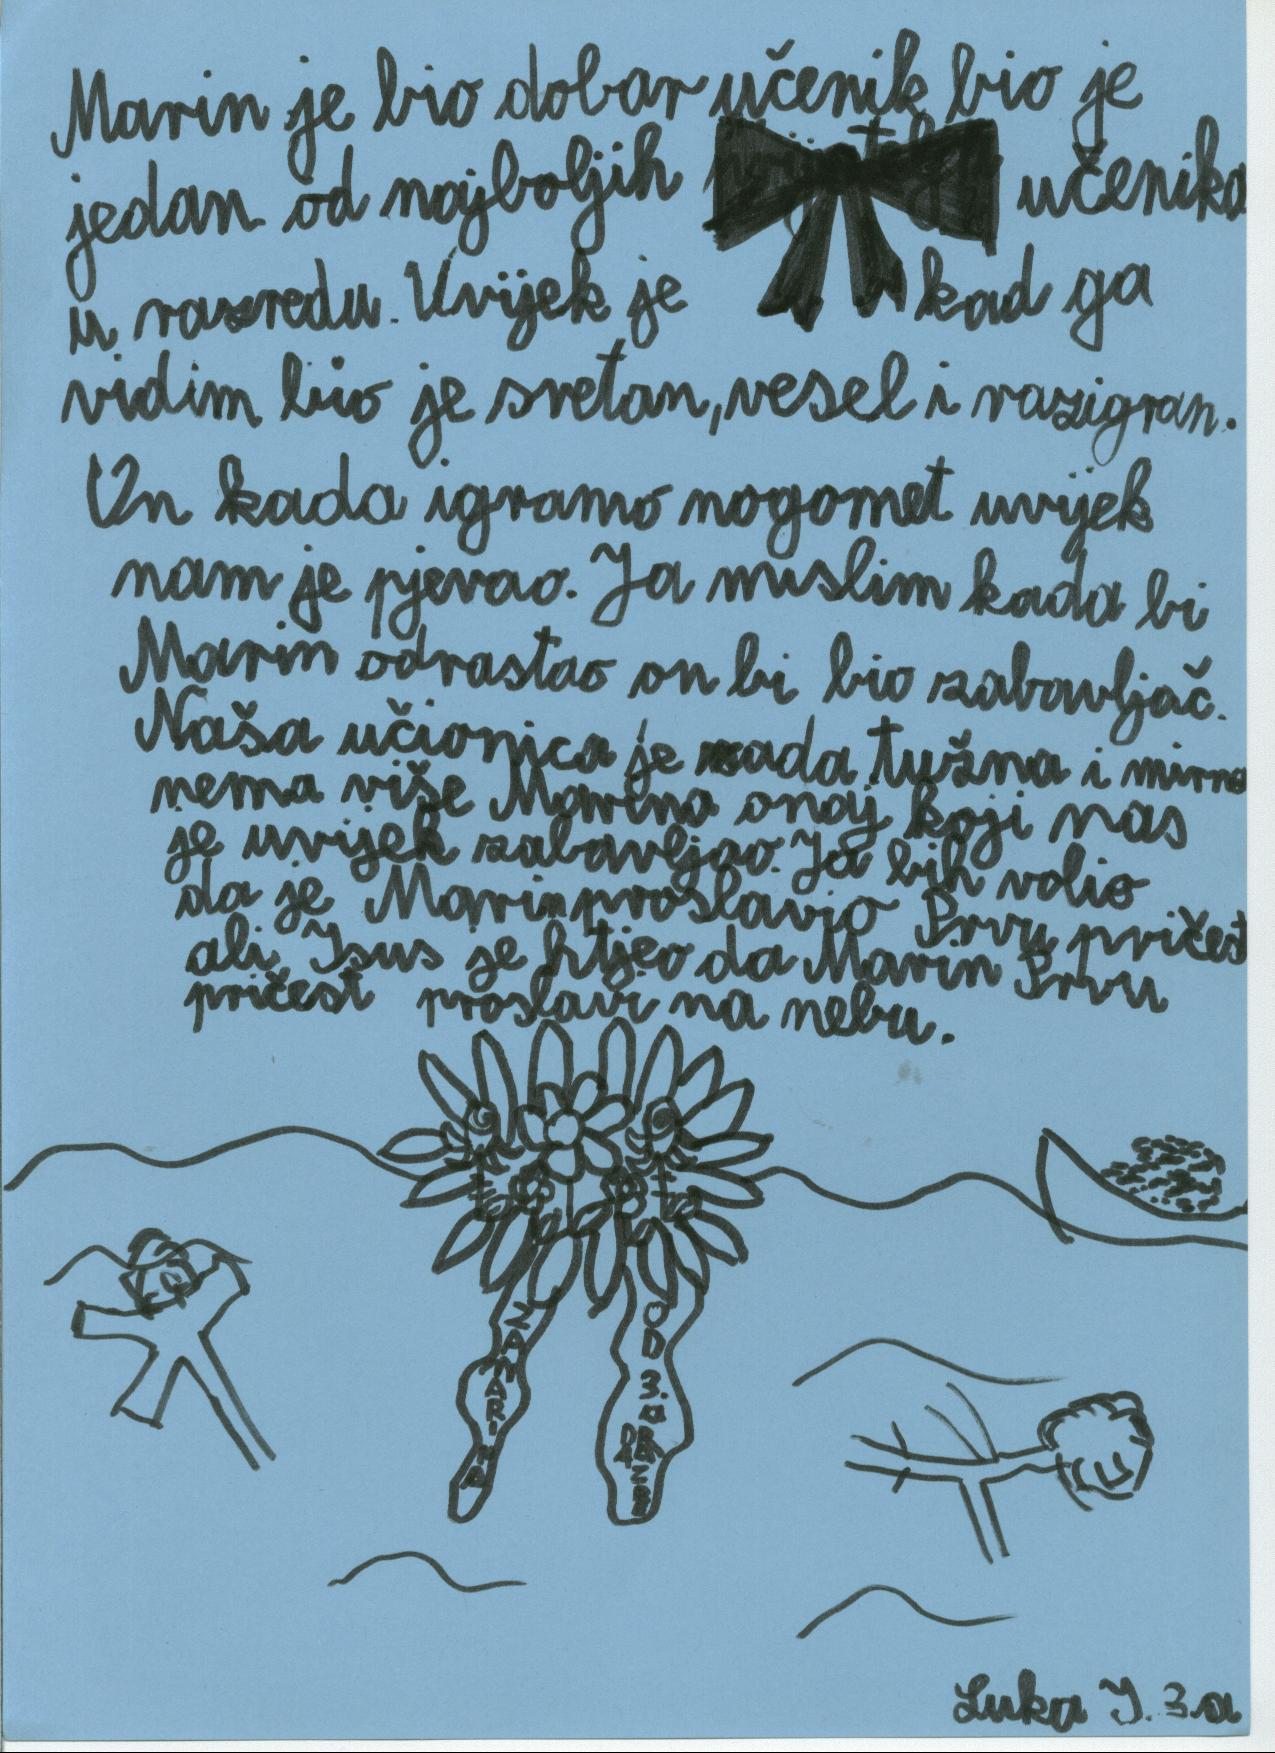 Marin je bio dobar učenik bio je
jedan od najboljih učenika
u razredu. Uvijek je kad ga
vidim bio je sretan, vesel i razigran.
On kada igramo nogomet uvijek
nam je pjevao. Ja mislim kada bi
Marin odrastao on bi bio zabavljač.
Naša učionica je sada tužna i mirna
nema više Marina onaj koji nas
je uvijek zabavljao. Ja bih volio
da je Marin proslavio Prvu pričest
ali Isus je htjeo da Marin Prvu
pričest proslavi na nebu.
ZA MARINA
OD 3. a RAZREDA
Luka J. 3.a